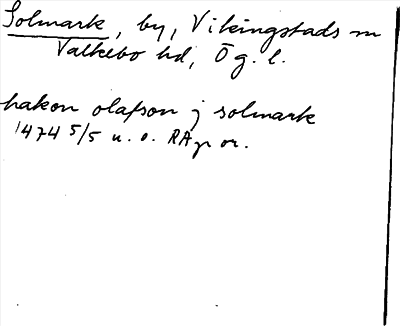 Solmark, by, Vikingstads sn
Valkebo hd, Ög. l.
hakon olafson j solmark
1474 5/5 u. o. RAp or.